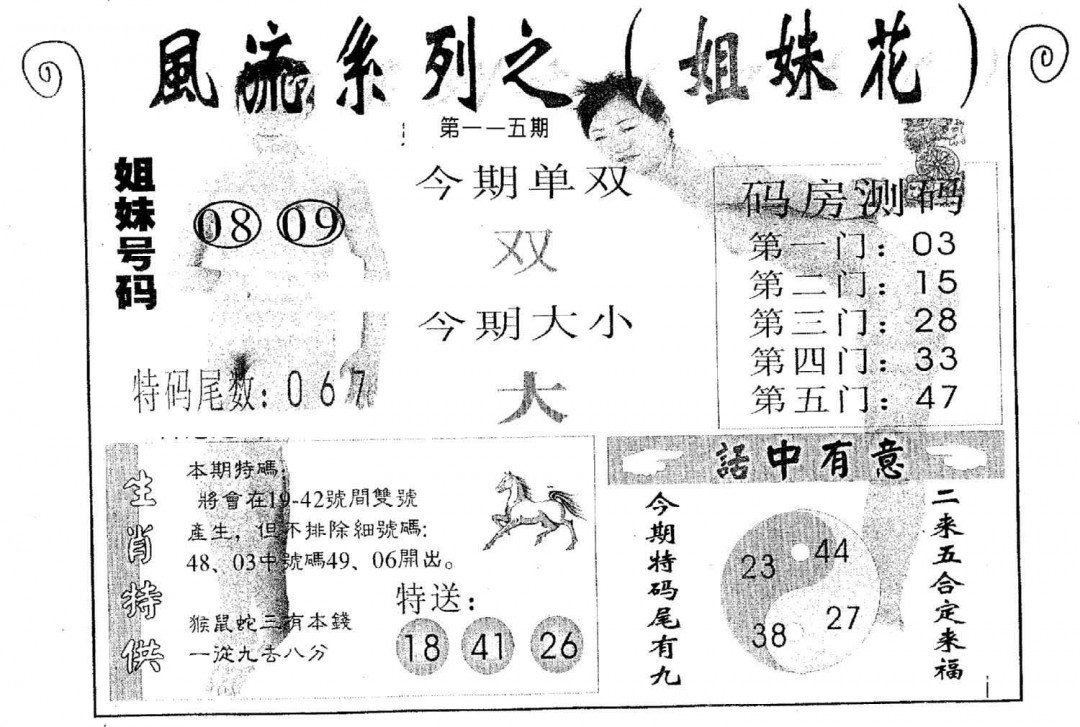 風流系列之（姐妹花）
第一一五期
姐妹号码
08 09
特码尾数：067
今期单双
双
今期大小
大
码房测码
第一门：03
第二门：15
第三门：28
第四门：33
第五门：47
生肖特供
本期特碼：
將會在19-42號間雙號
產生，但不排除細號碼：
48、03中號碼49、06開出。
猴鼠蛇三有本錢
一從九去八分
特送：
18 41 26
話中有意
今期特码尾有九
23 44
38 27
二来五合定来福